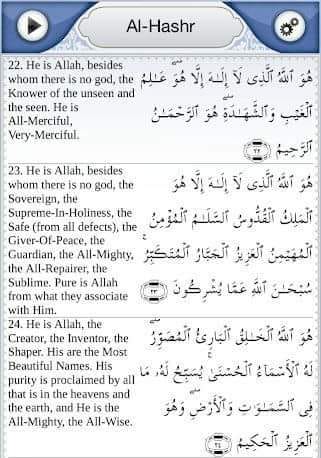 Al-Hashr
22. He is Allah, besides
whom there is no god, the
Knower of the unseen and
the seen. He is
All-Merciful,
Very-Merciful.
هُوَ ٱللَّهُ ٱلَّذِى لَآ إِلَـٰهَ إِلَّا هُوَ ۖ عَـٰلِمُ
ٱلْغَيْبِ وَٱلشَّهَـٰدَةِ ۖ هُوَ ٱلرَّحْمَـٰنُ
ٱلرَّحِيمُ ٢٢
23. He is Allah, besides
whom there is no god, the
Sovereign, the
Supreme-In-Holiness, the
Safe (from all defects), the
Giver-Of-Peace, the
Guardian, the All-Mighty,
the All-Repairer, the
Sublime. Pure is Allah
from what they associate
with Him.
هُوَ ٱللَّهُ ٱلَّذِى لَآ إِلَـٰهَ إِلَّا هُوَ
ٱلْمَلِكُ ٱلْقُدُّوسُ ٱلسَّلَـٰمُ ٱلْمُؤْمِنُ
ٱلْمُهَيْمِنُ ٱلْعَزِيزُ ٱلْجَبَّارُ ٱلْمُتَكَبِّرُ ۚ
سُبْحَـٰنَ ٱللَّهِ عَمَّا يُشْرِكُونَ ٢٣
24. He is Allah, the
Creator, the Inventor, the
Shaper. His are the Most
Beautiful Names. His
purity is proclaimed by all
that is in the heavens and
the earth, and He is the
All-Mighty, the All-Wise.
هُوَ ٱللَّهُ ٱلْخَـٰلِقُ ٱلْبَارِئُ ٱلْمُصَوِّرُ ۖ
لَهُ ٱلْأَسْمَآءُ ٱلْحُسْنَىٰ ۚ يُسَبِّحُ لَهُۥ مَا
فِى ٱلسَّمَـٰوَٰتِ وَٱلْأَرْضِ ۖ وَهُوَ
ٱلْعَزِيزُ ٱلْحَكِيمُ ٢٤